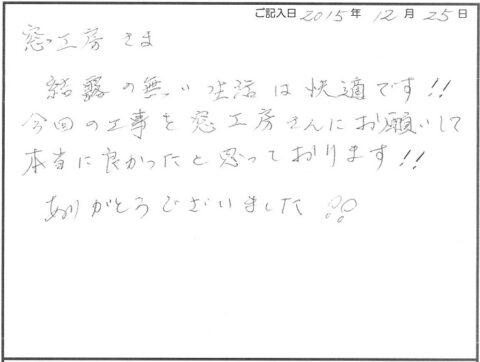 ご記入日 2015年 12月 25日
窓工房さま
結露の無い生活は快適です!!
今回の工事を窓工房さんにお願いして
本当に良かったと思っております!!
ありがとうございました